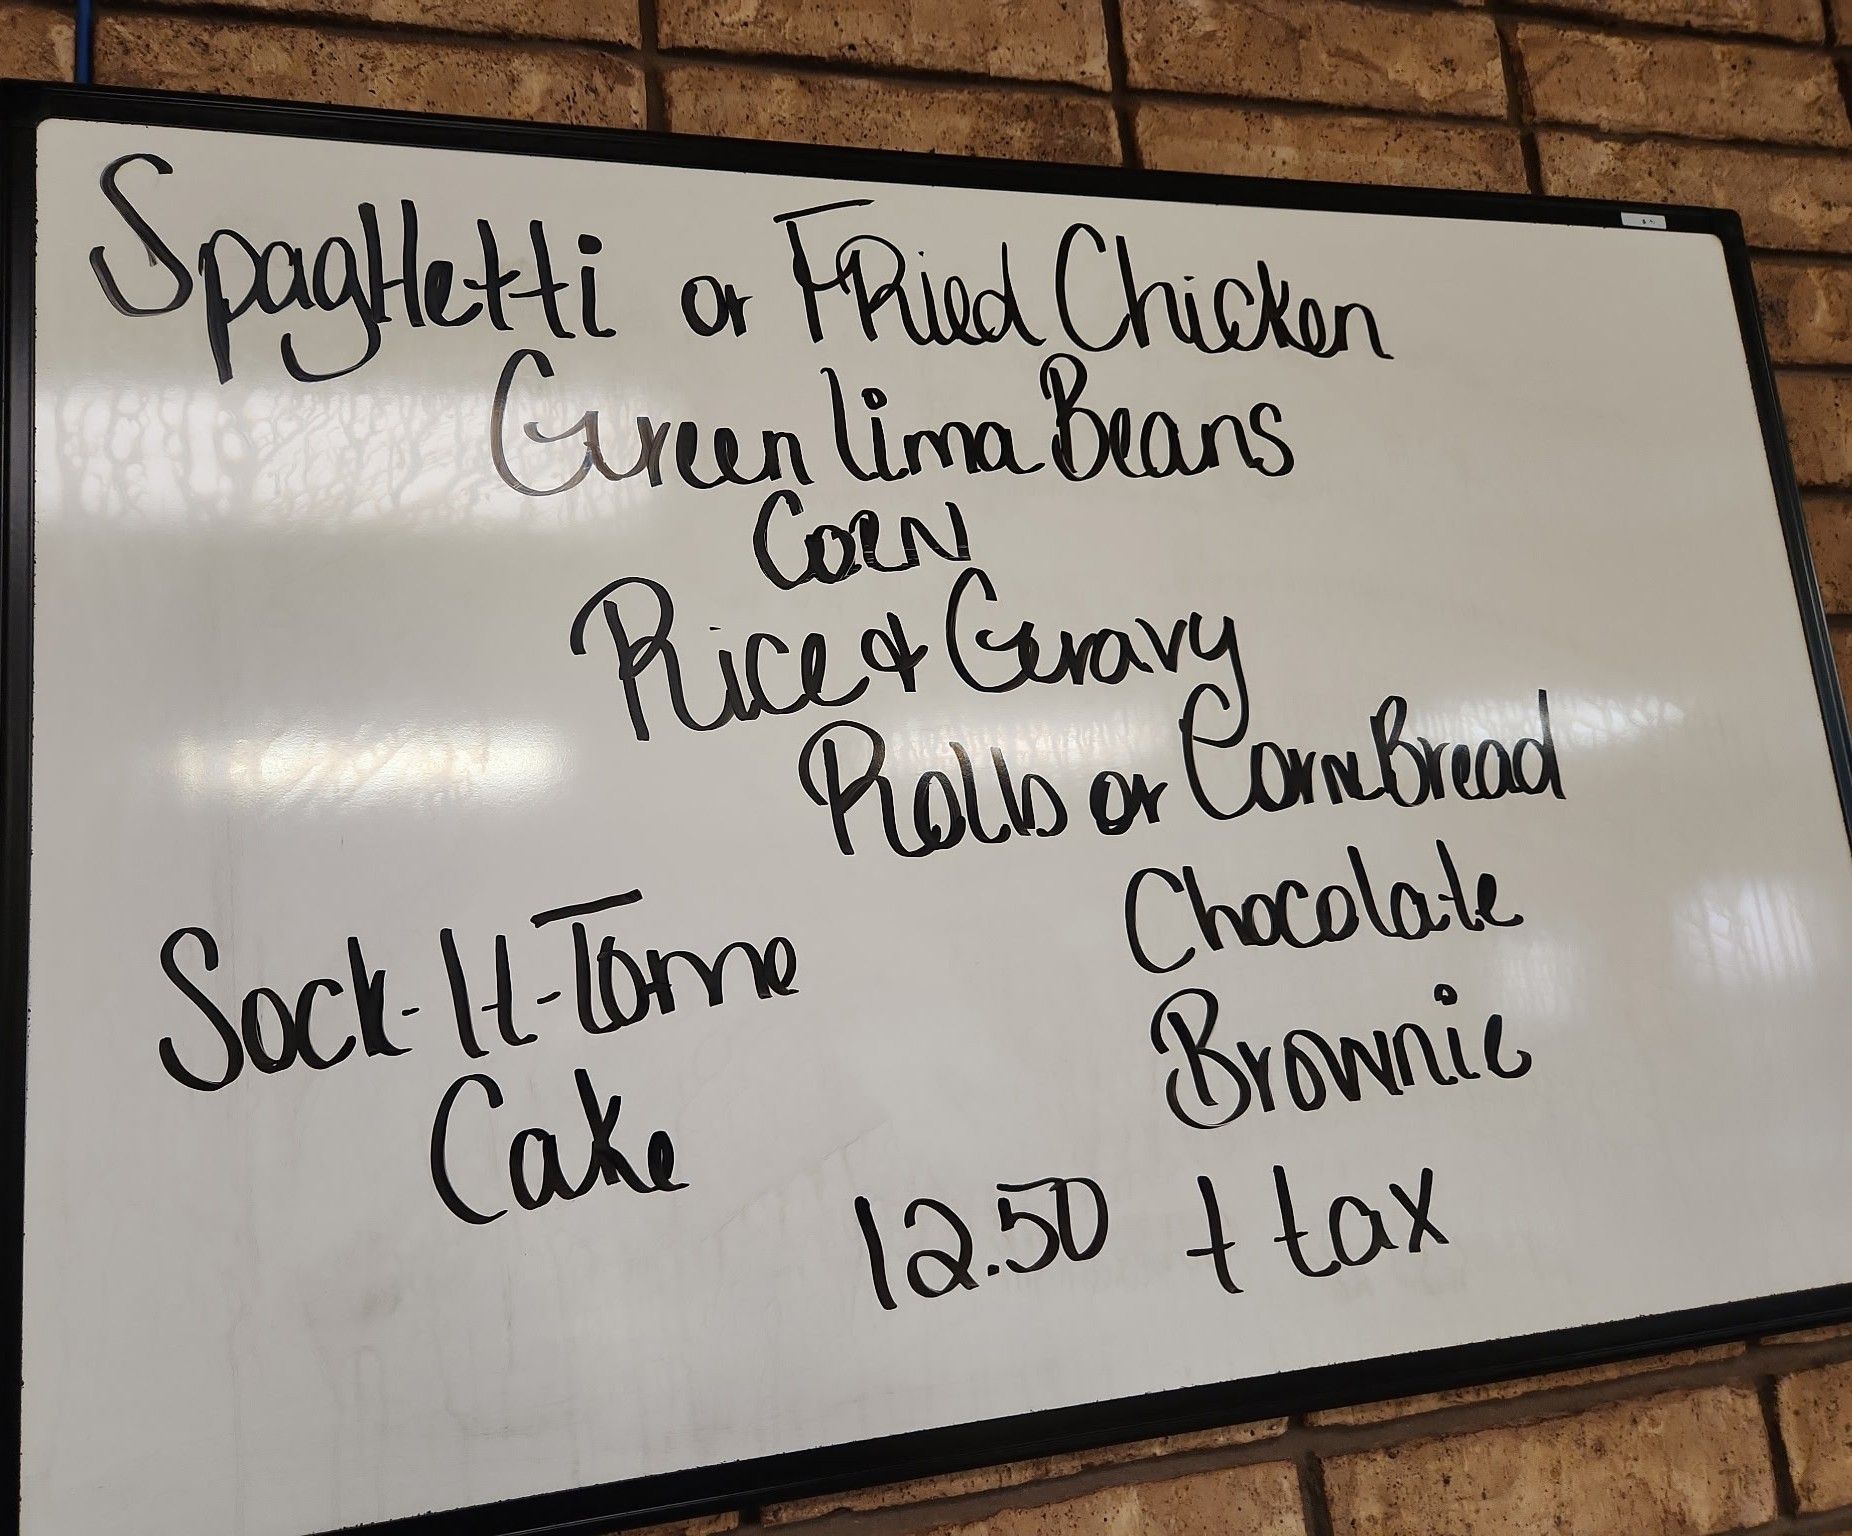 Spaghetti or Fried Chicken
Green lima Beans
Corn
Rice & Gravy
Rolls or CornBread
Sock-It-Tome
Cake
Chocolate
Brownie
12.50 + tax